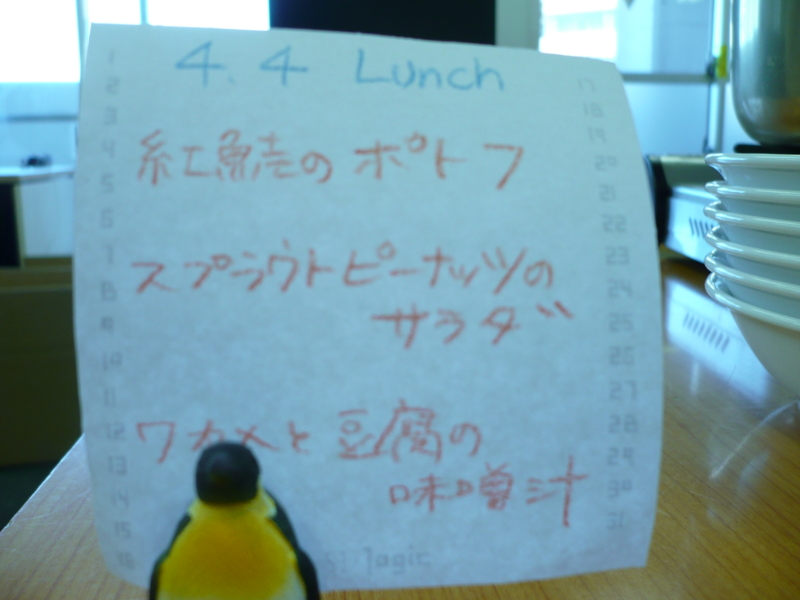 4.4 Lunch
紅鮭のポトフ
スプラウトピーナッツの
サラダ
ワカメと豆腐の
味噌汁
1
2
3
4
5
6
7
8
9
10
11
12
13
14
15
16
17
18
19
20
21
22
23
24
25
26
27
28
29
30
31
logic